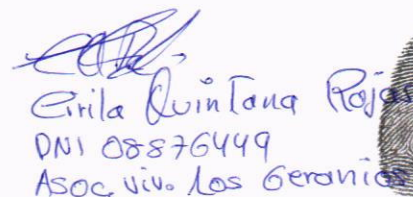 Cirila Quintana Rojas
DNI 08876449
Asoc. viv. Los Geranios